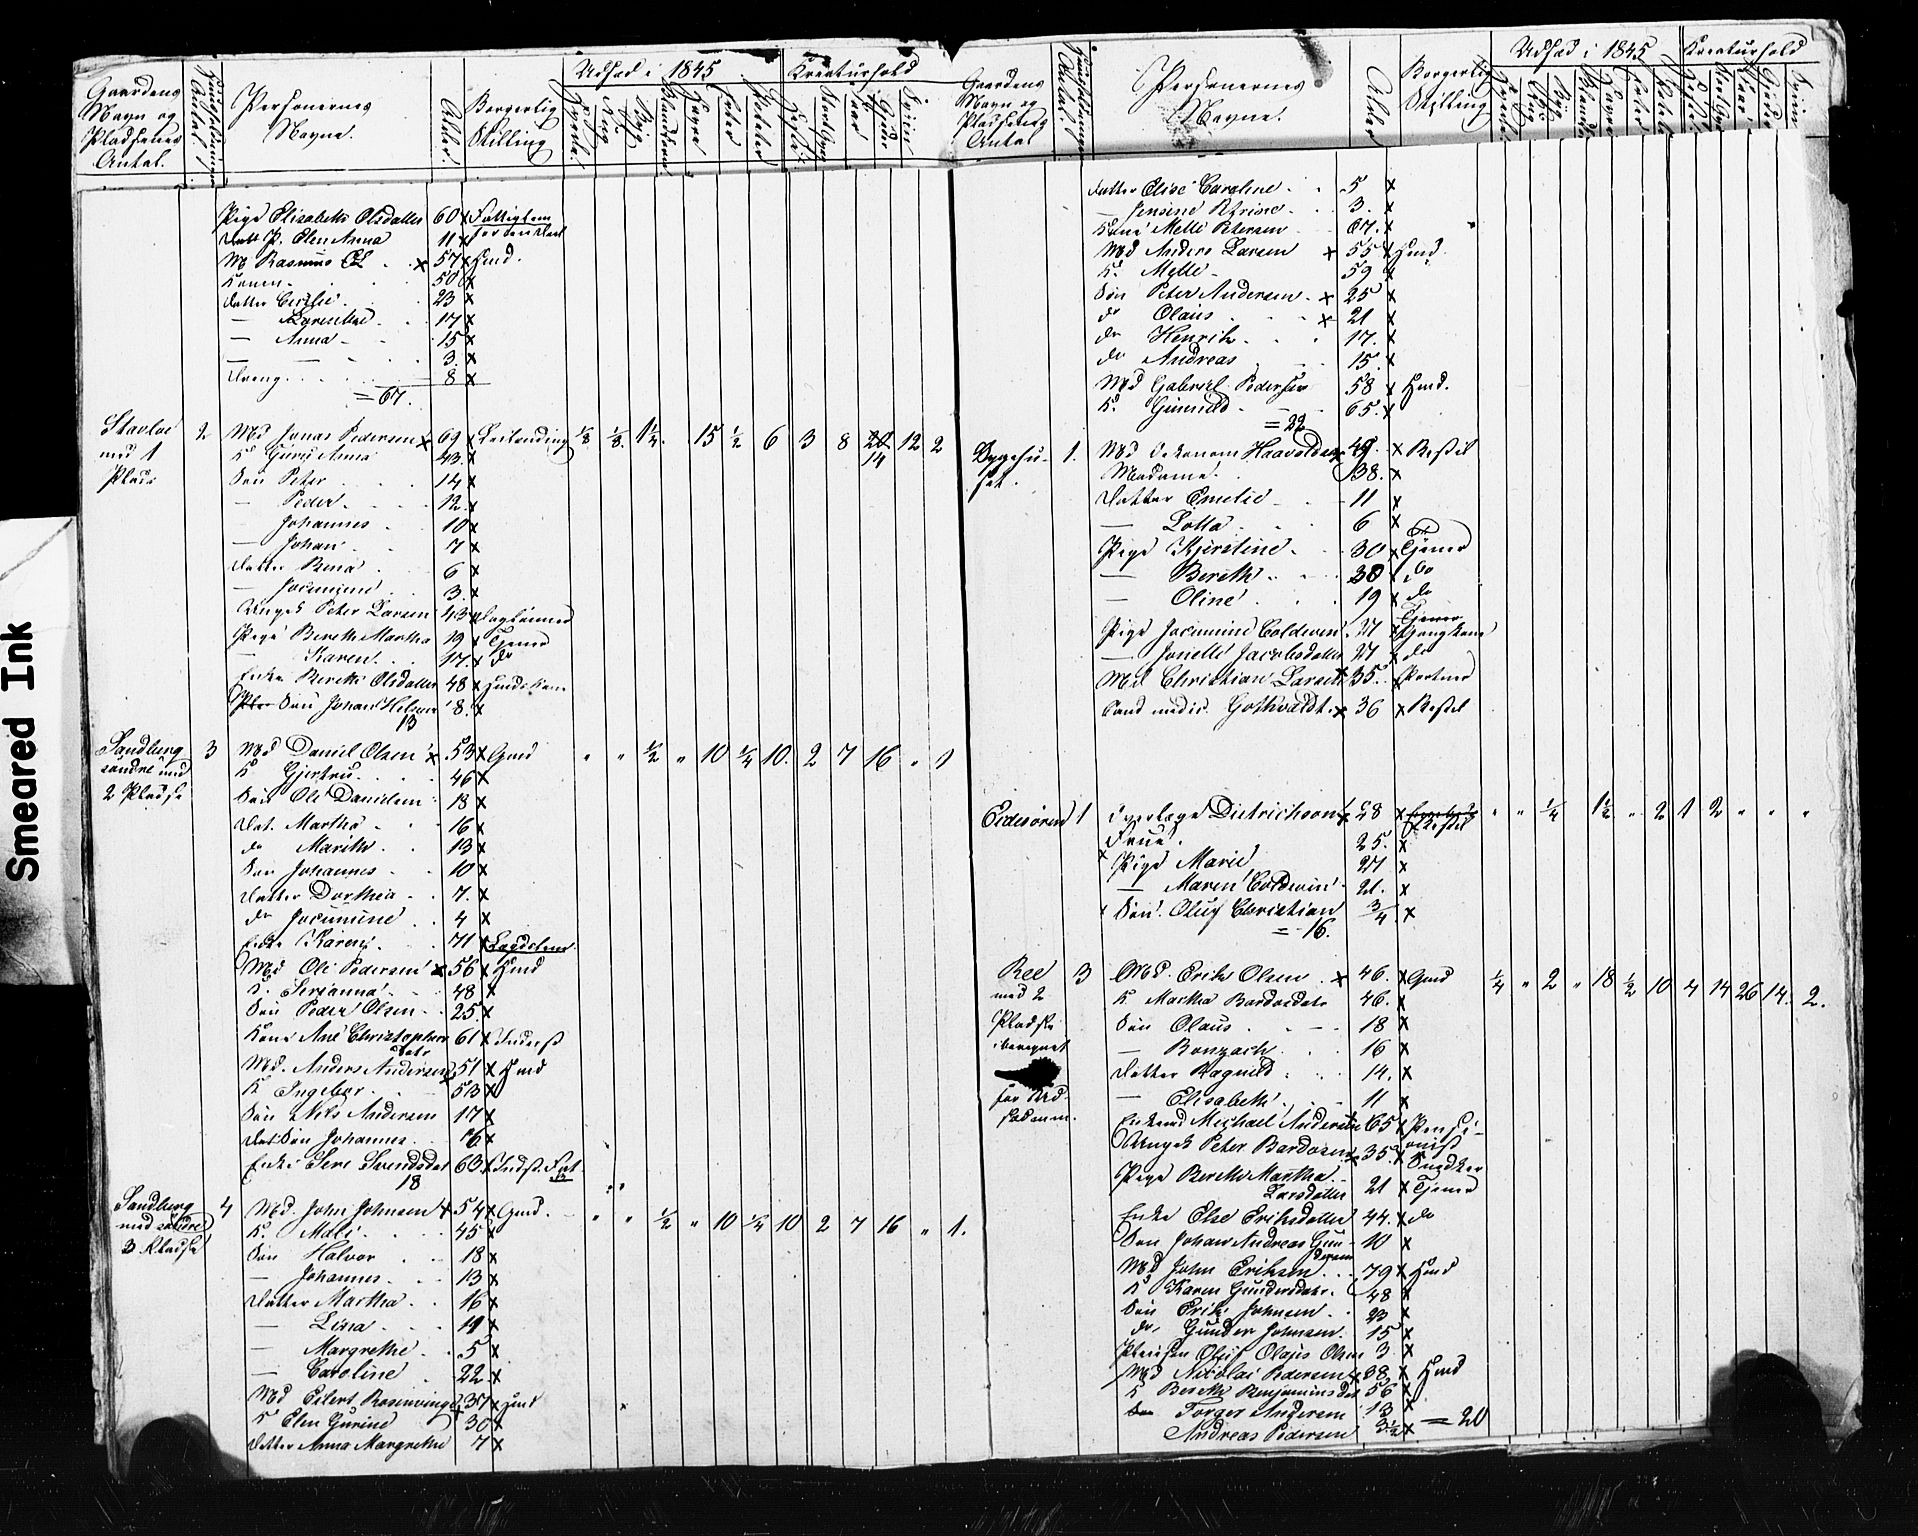 Smeared Ink
Gaardens Navn og Pladsenes Antal.
Personernes Navne.
Alder.
Borgerlig Stilling
Udsæd i 1845
Kreaturhold
Pige Elisabeth Olsdatter 60 x Fattiglem
Datt P. Elen Anna 11 x
M Rasmus x 57 x Huusmd.
Konen 50 x
Datter Cecilie 23 x
— Lorentke 17 x
— Anna 15 x
— — 3 x
Dreng 8 x
= 67.
Stavlve med 1 Plads 2 Md Jonas Pedersen x 69 x Leilending 1/8 1/8 1 1/4 15 1/2 6 3 8 14 12 2
K Guru Anna 43 x
Søn Peter 14 x
— Peder 12 x
— Johannes 10 x
— Johan 7 x
Datter Rena 6 x
— Jacomine 3 x
Ungk Peter Larsen 43 x Daglønner
Pige Berethe Martha 19 x Tjener
— Karen 17 x do
Enke Berette Olsdatter 48 x
Søn Johan Nilsen 8 x
13
Sandberg søndre med 2 Pladse 3 Md Daniel Olsen x 53 x Gmd " " 1/2 " 10 1/4 10 2 7 16 " 1
K Gjertru 46 x
Søn Ole Danielsen 18 x
Dat. Martha 16 x
do Marith 13 x
Søn Johannes 10 x
Datter Dorthea 7 x
do Jacomine 4 x
Enke Karen 71 x Lægdslem
Md Ole Pedersen x 56 x Hmd
K. Serianna 48 x
Søn Peder Olsen 25 x
Kone Ane Christophersdatr 61 x Inderst
Md. Anders Andersen 51 x Hmd
K Ingebor 53 x
Søn Nils Andersen 17 x
Søn Johannes 16 x
Enke Sere Svendsdat 63 x Indst. Fat
18
Sandberg med 3 Pladse 4 Md. John Johnsen x 54 x Gmd. " " 1/2 " 10 1/4 10 2 7 16 " 1.
K. Mali 45 x
Søn Halvor 18 x
— Johannes 13 x
Datter Martha 16 x
— Lina 11 x
— Margrethe 5 x
— Caroline 22 x
Md Eilert Rosenvinge x 37 x Hmd
K Elen Gurine 30 x
Datter Anna Margrethe 7 x
Gaardens Navn og Pladsenes Antal
Personernes Navne.
Alder
Borgerlig Stilling
Udsæd i 1845
Kreaturhold
Datter Elise Caroline 5 x
— Jensine Petrine 3 x
Kone Mette Petersen 67 x
Md Anders Larsen x 55 x Hmd.
K. Mette 59 x
Søn Peter Andersen x 25 x
do Olaus x 21 x
do Henrik 17 x
do Andreas 15 x
Md Gabriel Pedersen 58 x Hmd.
K. Gunnild 65 x
= 22
Sygehuset. 1. Md Oekonom Haavoldsen 49 x Bestil
Madame 38 x
Datter Emelie 11 x
— Lotta 6 x
Pige Kjerstine 30 x Tjener
— Bereth 30 x do
— Oline 19 x do
Pige Jacomine Coldevin 21 x Tjener Gangkone
— Jonette Jacobsdatter 21 x do
Md Christian Larsen x 35 x Portner
Cand medic. Gothvaldt x 36 x Bestil
Eidesøren 1 Overlæge Dietrichson x 28 x Bestil " " 1/4 1 1/2 " 2 1 2 " " "
Frue 25 x
x Pige Marie 27 x
— Maren Coldevin 21 x
x Søn. Oluf Christian 3/4 x
= 16.
Ree med 2 Pladse iberegnet for Udsæden. 3 Md. Erik Olsen x 46 x Gmd 1/4 " 2 " 18 1/2 10 4 14 26 14 2.
K Martha Bardosdatr 46 x
Søn Olaus 18 x
— Bonzach 16 x
Datter Ragnild 14 x
— Elisabeth 11 x
Enkemd Michael Andersen 65 x Pensionist
Ungk Peter Bardosen x 35 x Snedker
Pige Berethe Martha Larsdatter 21 x Tjener
Enke Else Eriksdatter 44 x do
Søn Johan Andreas Gundersen 10 x
Md John Eriksen 79 x Hmd
K Karen Gundersdatr. 48 x
Søn Erik Johnsen 23 x
do. Gunder Johnsen 15 x
Pleiesøn Oluf Olajs Olsen 3 x
Md Nicolai Pedersen x 38 x Hmd
K Berethe Benjaminsdat 56 x
Torger Andersen 13 x
Andreas Pedersen 3 1/2 x = 20